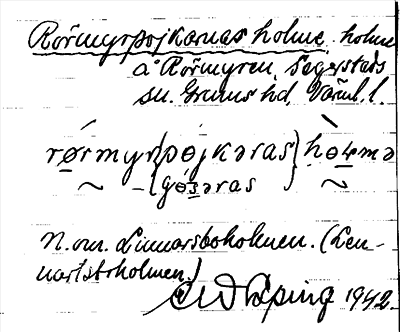 Rörmyrpojkarnas holme. holme
å Rörmyren, Segerstads
sn. Grums hd, Värml. l.
rørmyr{pøjkəras} hɷlmə
{gøsəras}
N. om. Linnarsboholmen. (Len-
nartsboholmen.)
1942.